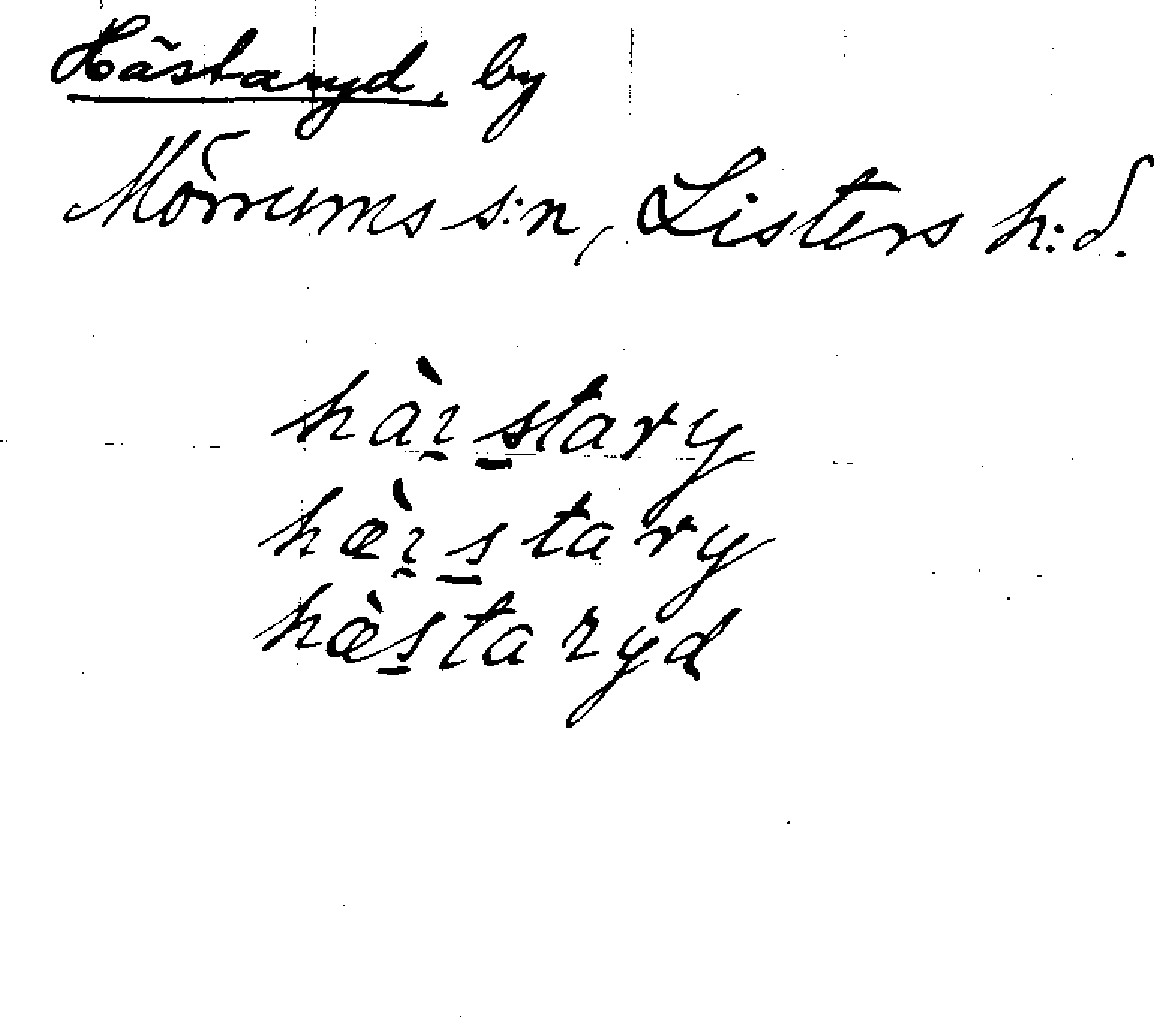 Hästaryd, by
Mörrums s:n, Listers h:d.
hàı̯s̲tary
hæ̀ı̯s̲tary
hæ̀s̲taryd